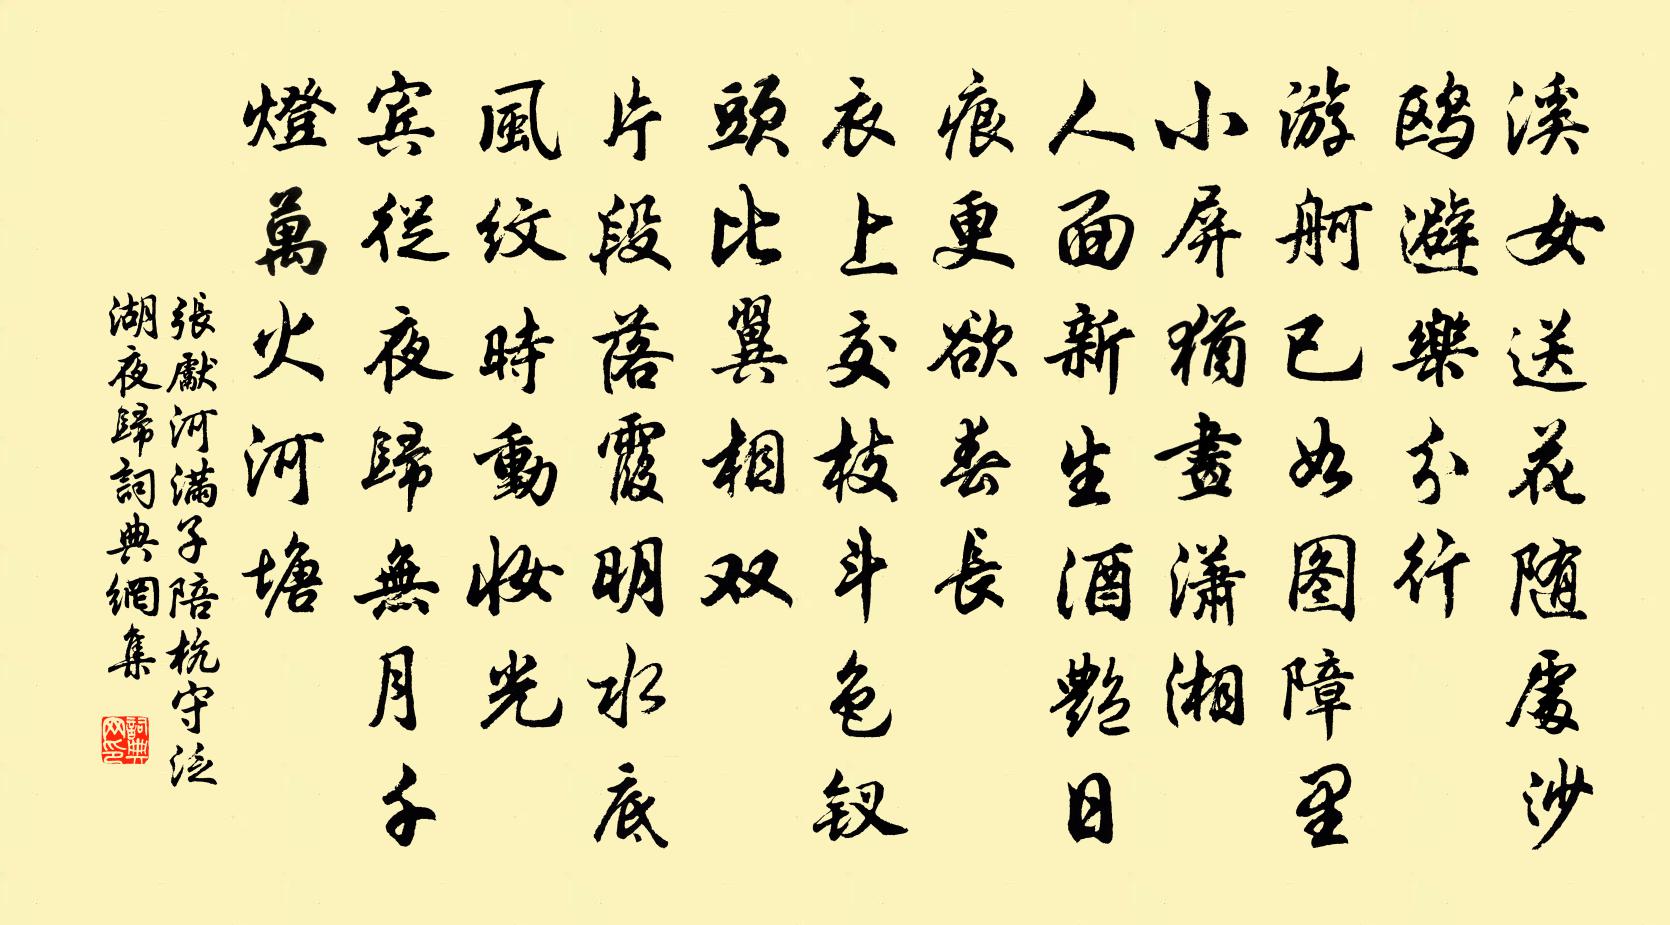 溪女送花随處沙
鸥避樂分行
游舸已如图障里
小屏猶畫瀟湘
人面新生酒艷日
痕更欲春長
衣上交枝斗色钗
頭比翼相双
片段落霞明水底
風纹時動妝光
宾從夜歸無月千
燈萬火河塘
張獻河满子陪杭守泛
湖夜歸詞典網集
詞典网印